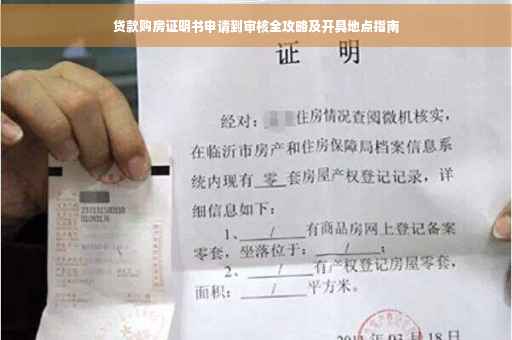 贷款购房证明书申请到审核全攻略及开具地点指南
证 明
经对：住房情况查阅微机核实，
在临沂市房产和住房保障局档案信息系
统内现有 零 套房屋产权登记记录，详
细信息如下：
1、 / 有商品房网上登记备案
零套，坐落位于： / ；
2、 / 有产权登记房屋零套，
面积： / 平方米。
03月18日